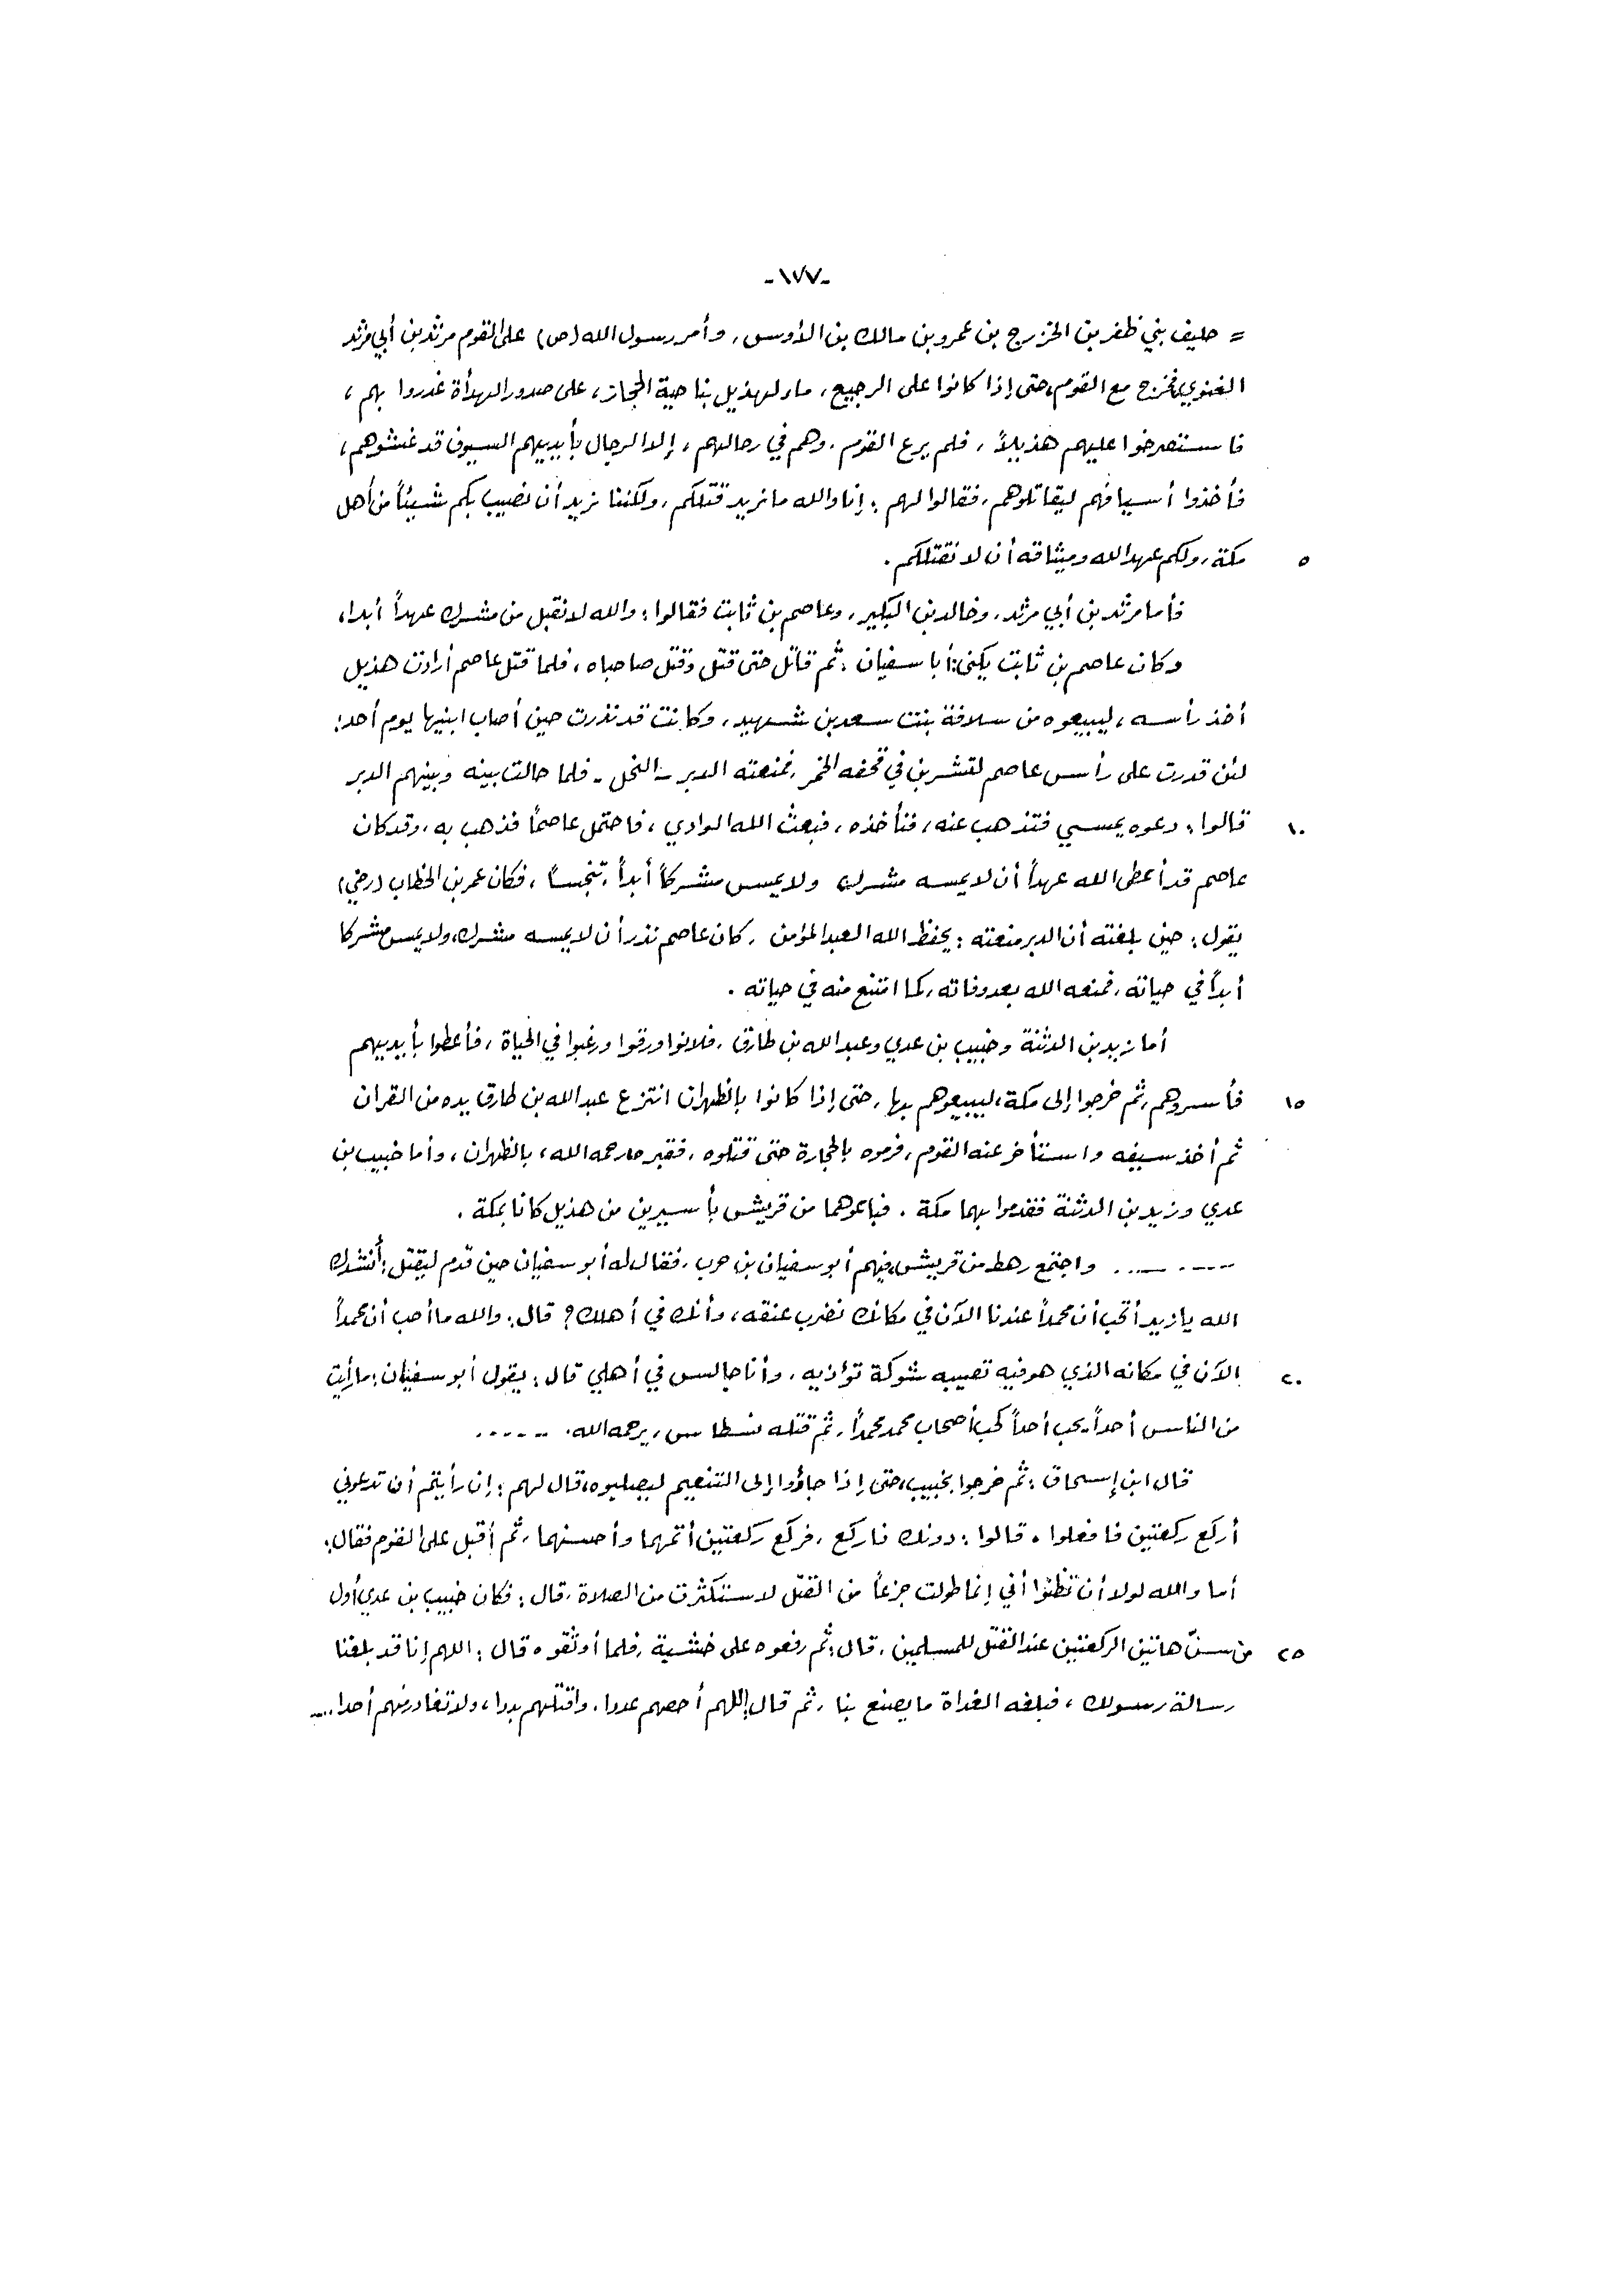 -١٧٧-
= حليف بني ظفر بن الخزرج بن عمرو بن مالك بن الأوس، وأمر رسول الله (ص) على القوم مرثد بن أبي مرثد
الغنوي، فخرج مع القوم، حتى إذا كانوا على الرجيع، ماء لهذيل بناحية الحجاز، على صدور الهدأة غدروا بهم،
فاستصرخوا عليهم هذيلاً، فلم يرع القوم، وهم في رحالهم، إلا الرجال بأيديهم السيوف قد غشوهم،
فأخذوا أسيافهم ليقاتلوهم، فقالوا لهم: إنا والله ما نريد قتلكم، ولكننا نريد أن نصيب بكم شيئاً من أهل
٥ مكة، ولكم عهد الله وميثاقه أن لا نقتلكم.
فأما مرثد بن أبي مرثد، وخالد بن البكير، وعاصم بن ثابت فقالوا: والله لا نقبل من مشرك عهداً أبدا،
وكان عاصم بن ثابت يكنى: أبا سفيان: ثم قاتل حتى قتل وقتل صاحباه، فلما قتل عاصم أرادت هذيل
أخذ رأسه، ليبيعوه من سلافة بنت سعد بن شهيد، وكانت قد نذرت حين أصاب ابنيها يوم أحد:
لئن قدرت على رأس عاصم لتشربن في قحفه الخمر، فمنعته الدبر - النحل - فلما حالت بينه وبينهم الدبر
١٠ قالوا: دعوه يمسي فتذهب عنه، فنأخذه، فبعث الله الوادي، فاحتمل عاصماً فذهب به، وقد كان
عاصم قد أعطى الله عهداً أن لا يمسه مشرك ولا يمس مشركاً أبداً، تنجساً، فكان عمر بن الخطاب (رضي)
يقول: حين بلغته أن الدبر منعته: يحفظ الله العبد المؤمن، كان عاصم نذر أن لا يمسه مشرك، ولا يمس مشركا
أبداً في حياته، فمنعه الله بعد وفاته، كما امتنع منه في حياته.
أما زيد بن الدثنة وخبيب بن عدي وعبد الله بن طارق، فلانوا ورقوا ورغبوا في الحياة، فأعطوا بأيديهم
١٥ فأسروهم، ثم خرجوا إلى مكة، ليبيعوهم بها، حتى إذا كانوا بالظهران انتزع عبد الله بن طارق يده من القران
ثم أخذ سيفه واستأخر عنه القوم، فرموه بالحجارة حتى قتلوه، فقبره، رحمه الله، بالظهران، وأما خبيب بن
عدي وزيد بن الدثنة فقدموا بهما مكة. فباعوهما من قريش بأسيرين من هذيل كانا بمكة.
........ واجتمع رهط من قريش، فيهم أبو سفيان بن حرب، فقال له أبو سفيان حين قدم ليقتل: أنشدك
الله يا زيد أتحب أن محمداً عندنا الآن في مكانك نضرب عنقه، وأنك في أهلك؟ قال: والله ما أحب أن محمداً
٢٠ الآن في مكانه الذي هو فيه تصيبه شوكة تؤذيه، وأنا جالس في أهلي قال: يقول أبو سفيان: ما رأيت
من الناس أحداً يحب أحداً كحب أصحاب محمد محمداً، ثم قتله نسطاس، يرحمه الله. ......
قال ابن إسحاق: ثم خرجوا بخبيب، حتى إذا جاؤوا إلى التنعيم ليصلبوه، قال لهم: إن رأيتم أن تدعوني
أركع ركعتين فافعلوا. قالوا: دونك فاركع، فركع ركعتين أتمهما وأحسنهما، ثم أقبل على القوم فقال:
أما والله لولا أن تظنوا أني إنما طولت جزعاً من القتل لاستكثرت من الصلاة، قال: فكان خبيب بن عدي أول
٢٥ من سنّ هاتين الركعتين عند القتل للمسلمين. قال: ثم رفعوه على خشبة، فلما أوثقوه قال: اللهم إنا قد بلغنا
رسالة رسولك، فبلغه الغداة ما يصنع بنا، ثم قال: اللهم أحصهم عددا، واقتلهم بددا، ولا تغادر منهم أحدا....